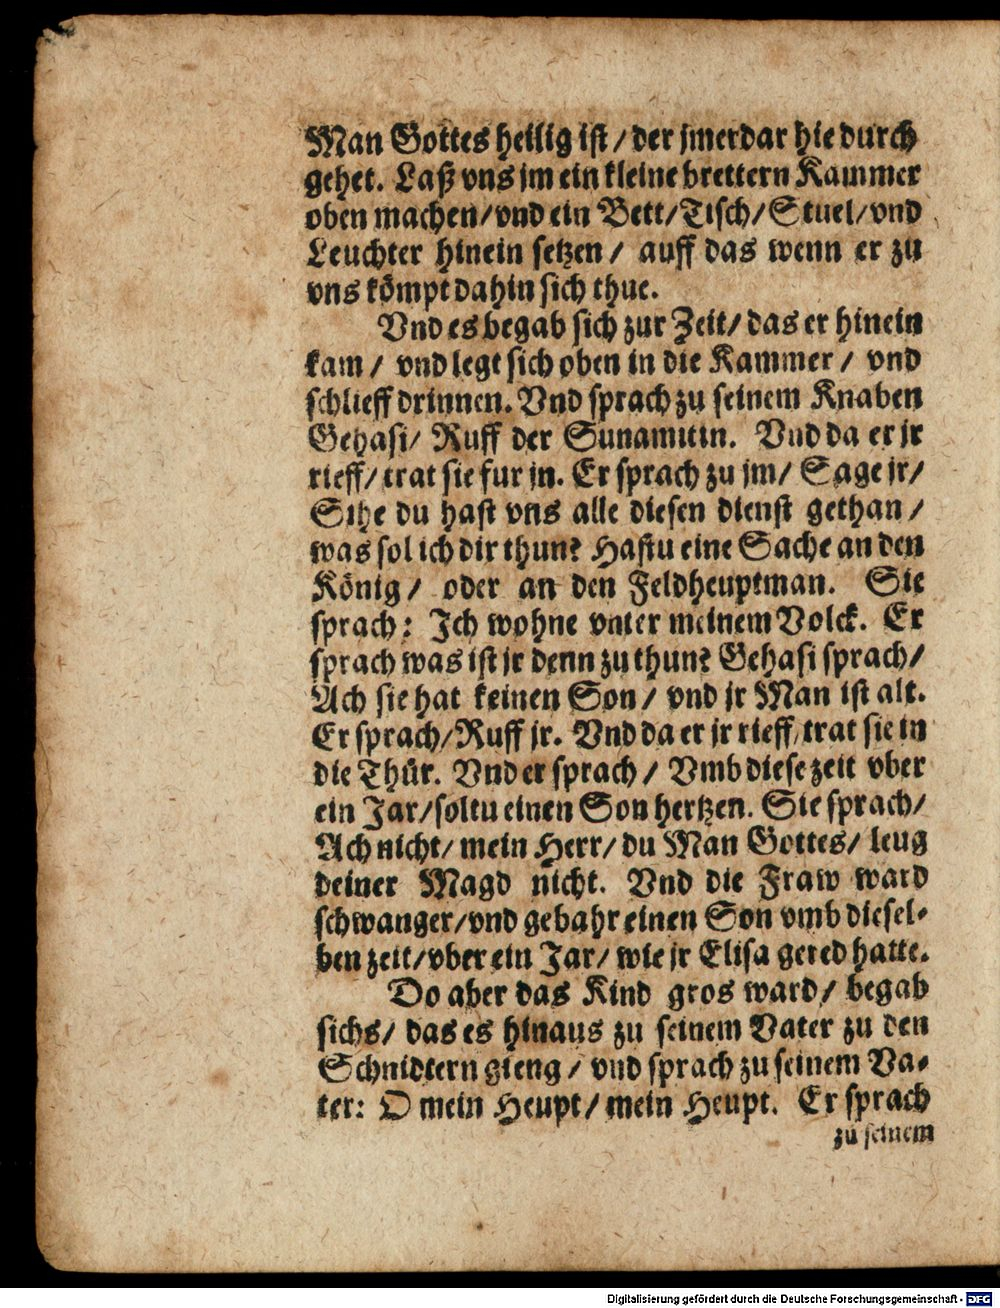 Man Gottes heilig ist / der jmerdar hie durch
gehet. Laß vns jm ein kleine brettern Kammer
oben machen / vnd ein Bett / Tisch / Stuel / vnd
Leuchter hinein setzen / auff das wenn er zu
vns kömpt dahin sich thue.
Vnd es begab sich zur Zeit / das er hinein
kam / vnd legt sich oben in die Kammer / vnd
schlieff drinnen. Vnd sprach zu seinem Knaben
Gehasi / Ruff der Sunamitin. Vnd da er jr
rieff / trat sie fur jn. Er sprach zu jm / Sage jr /
Sihe du hast vns alle diesen dienst gethan /
was sol ich dir thun? Hastu eine Sache an den
König / oder an den Feldheuptman. Sie
sprach: Ich wohne vnter meinem Volck. Er
sprach was ist jr denn zu thun? Gehasi sprach /
Ach sie hat keinen Son / vnd jr Man ist alt.
Er sprach / Ruff jr. Vnd da er jr rieff / trat sie in
die Thür. Vnd er sprach / Vmb diese zeit vber
ein Jar / soltu einen Son hertzen. Sie sprach /
Ach nicht / mein Herr / du Man Gottes / leug
deiner Magd nicht. Vnd die Fraw ward
schwanger / vnd gebahr einen Son vmb diesel-
ben zeit / vber ein Jar / wie jr Elisa gered hatte.
Do aber das Kind gros ward / begab
sichs / das es hinaus zu seinem Vater zu den
Schnidtern gieng / vnd sprach zu seinem Va-
ter: O mein Heupt / mein Heupt. Er sprach
zu seinem
Digitalisierung gefördert durch die Deutsche Forschungsgemeinschaft - DFG